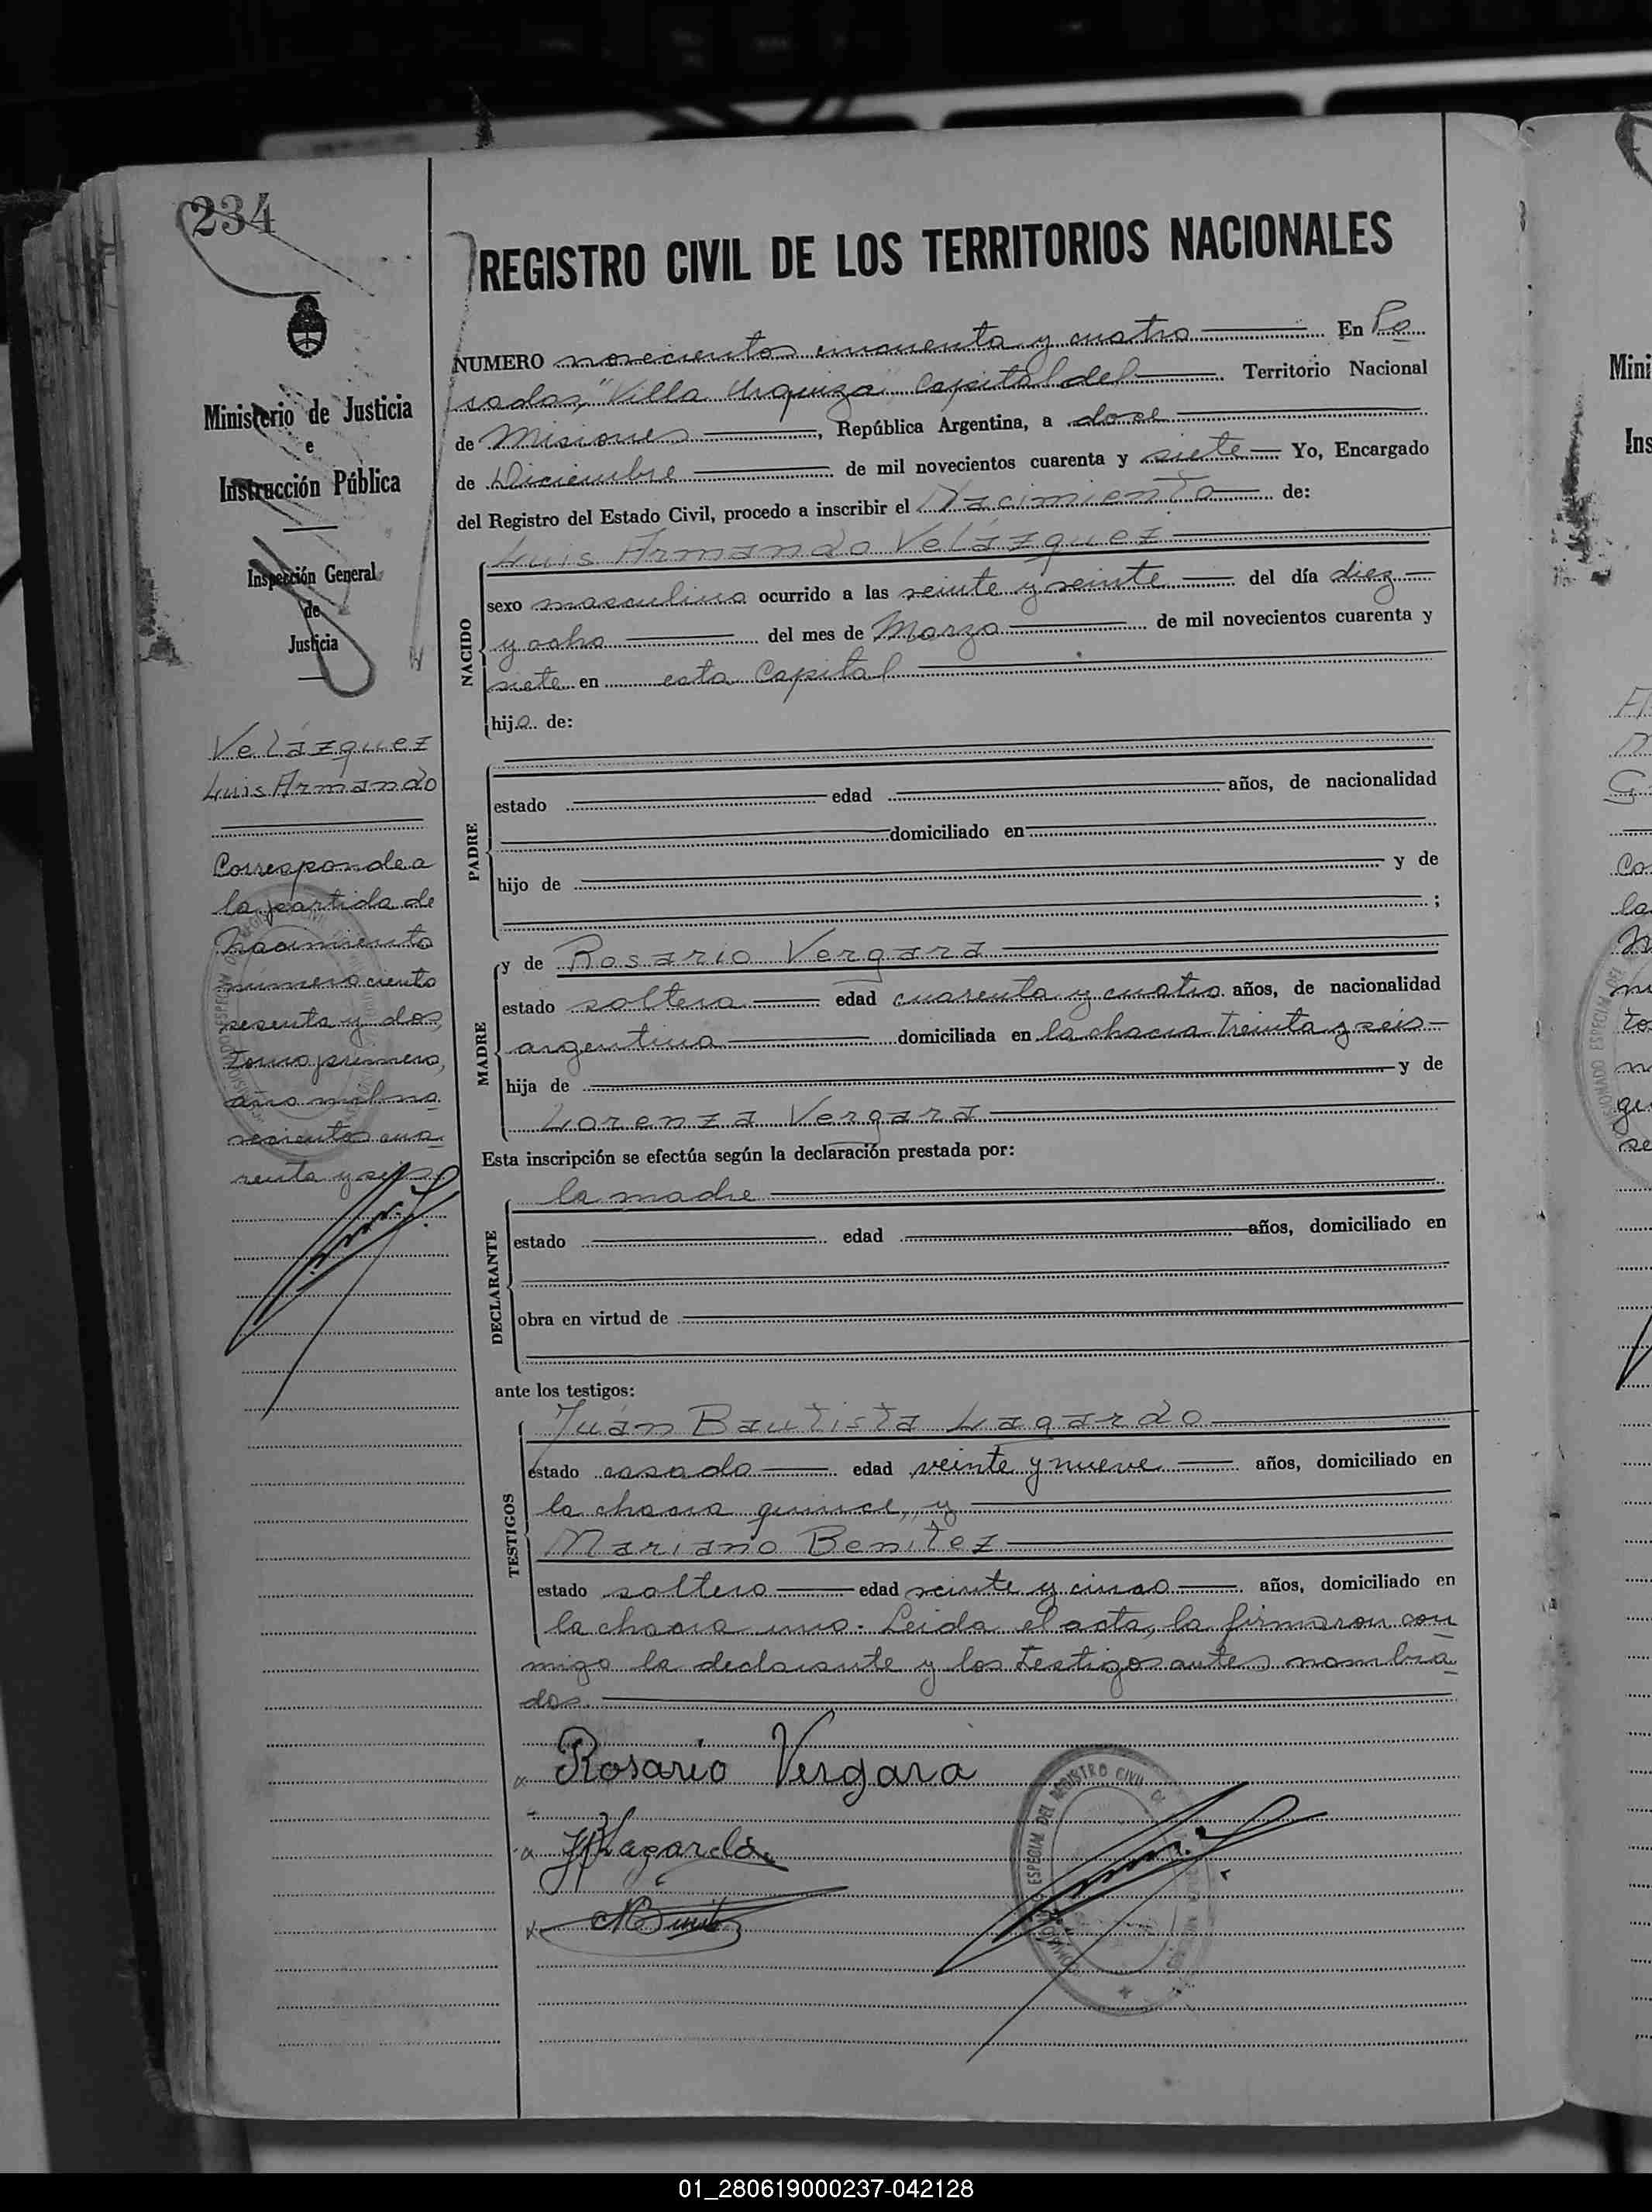 234
REGISTRO CIVIL DE LOS TERRITORIOS NACIONALES
NUMERO novecientos cincuenta y cuatro En Po
sadas, "Villa Urquiza" Capital del Territorio Nacional
de Misiones, República Argentina, a doce
de Diciembre de mil novecientos cuarenta y siete Yo, Encargado
del Registro del Estado Civil, procedo a inscribir el Nacimiento de:
NACIDO
Luis Armando Velázquez
sexo masculino ocurrido a las veinte y veinte del día diez
y ocho del mes de Marzo de mil novecientos cuarenta y
siete en esta Capital
hijo de:
PADRE
estado edad años, de nacionalidad
domiciliado en
hijo de y de
;
MADRE
y de Rosario Vergara
estado soltera edad cuarenta y cuatro años, de nacionalidad
argentina domiciliada en la chacra treinta y seis
hija de y de
Lorenza Vergara
Esta inscripción se efectúa según la declaración prestada por:
DECLARANTE
la madre
estado edad años, domiciliado en
obra en virtud de
ante los testigos:
TESTIGOS
Juan Bautista Lagardo
estado casado edad veinte y nueve años, domiciliado en
la chacra quince, y
Mariano Benitez
estado soltero edad veinte y cinco años, domiciliado en
la chacra uno. Leida el acta, la firmaron con
migo la declarante y los testigos antes nombra
dos.
Rosario Vergara
JBLagardo
MBenitez
Ministerio de Justicia
e
Instrucción Pública
Inspección General
de
Justicia
Velázquez
Luis Armando
Corresponde a
la partida de
nacimiento
número ciento
sesenta y dos,
tomo primero,
año mil no
vecientos cua
renta y seis
ESPECIAL DEL REGISTRO CIVIL
Mini
Ins
Co
la
COMISIONADO ESPECIAL DEL
01_280619000237-042128